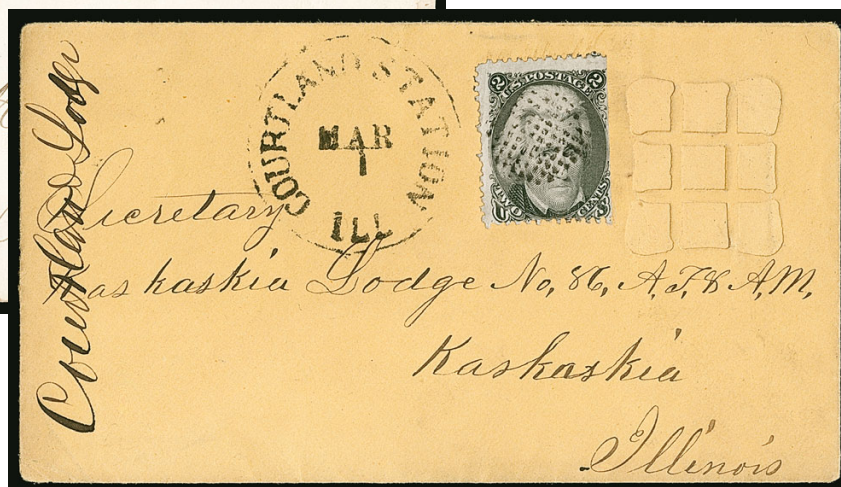 Courtland Lodge
COURTLAND STATION
MAR
1
ILL
U.S. POSTAGE
2 2
TWO CENTS
Secretary
Kaskaskia Lodge No, 86, A, F, & A, M,
Kaskaskia
Illinois